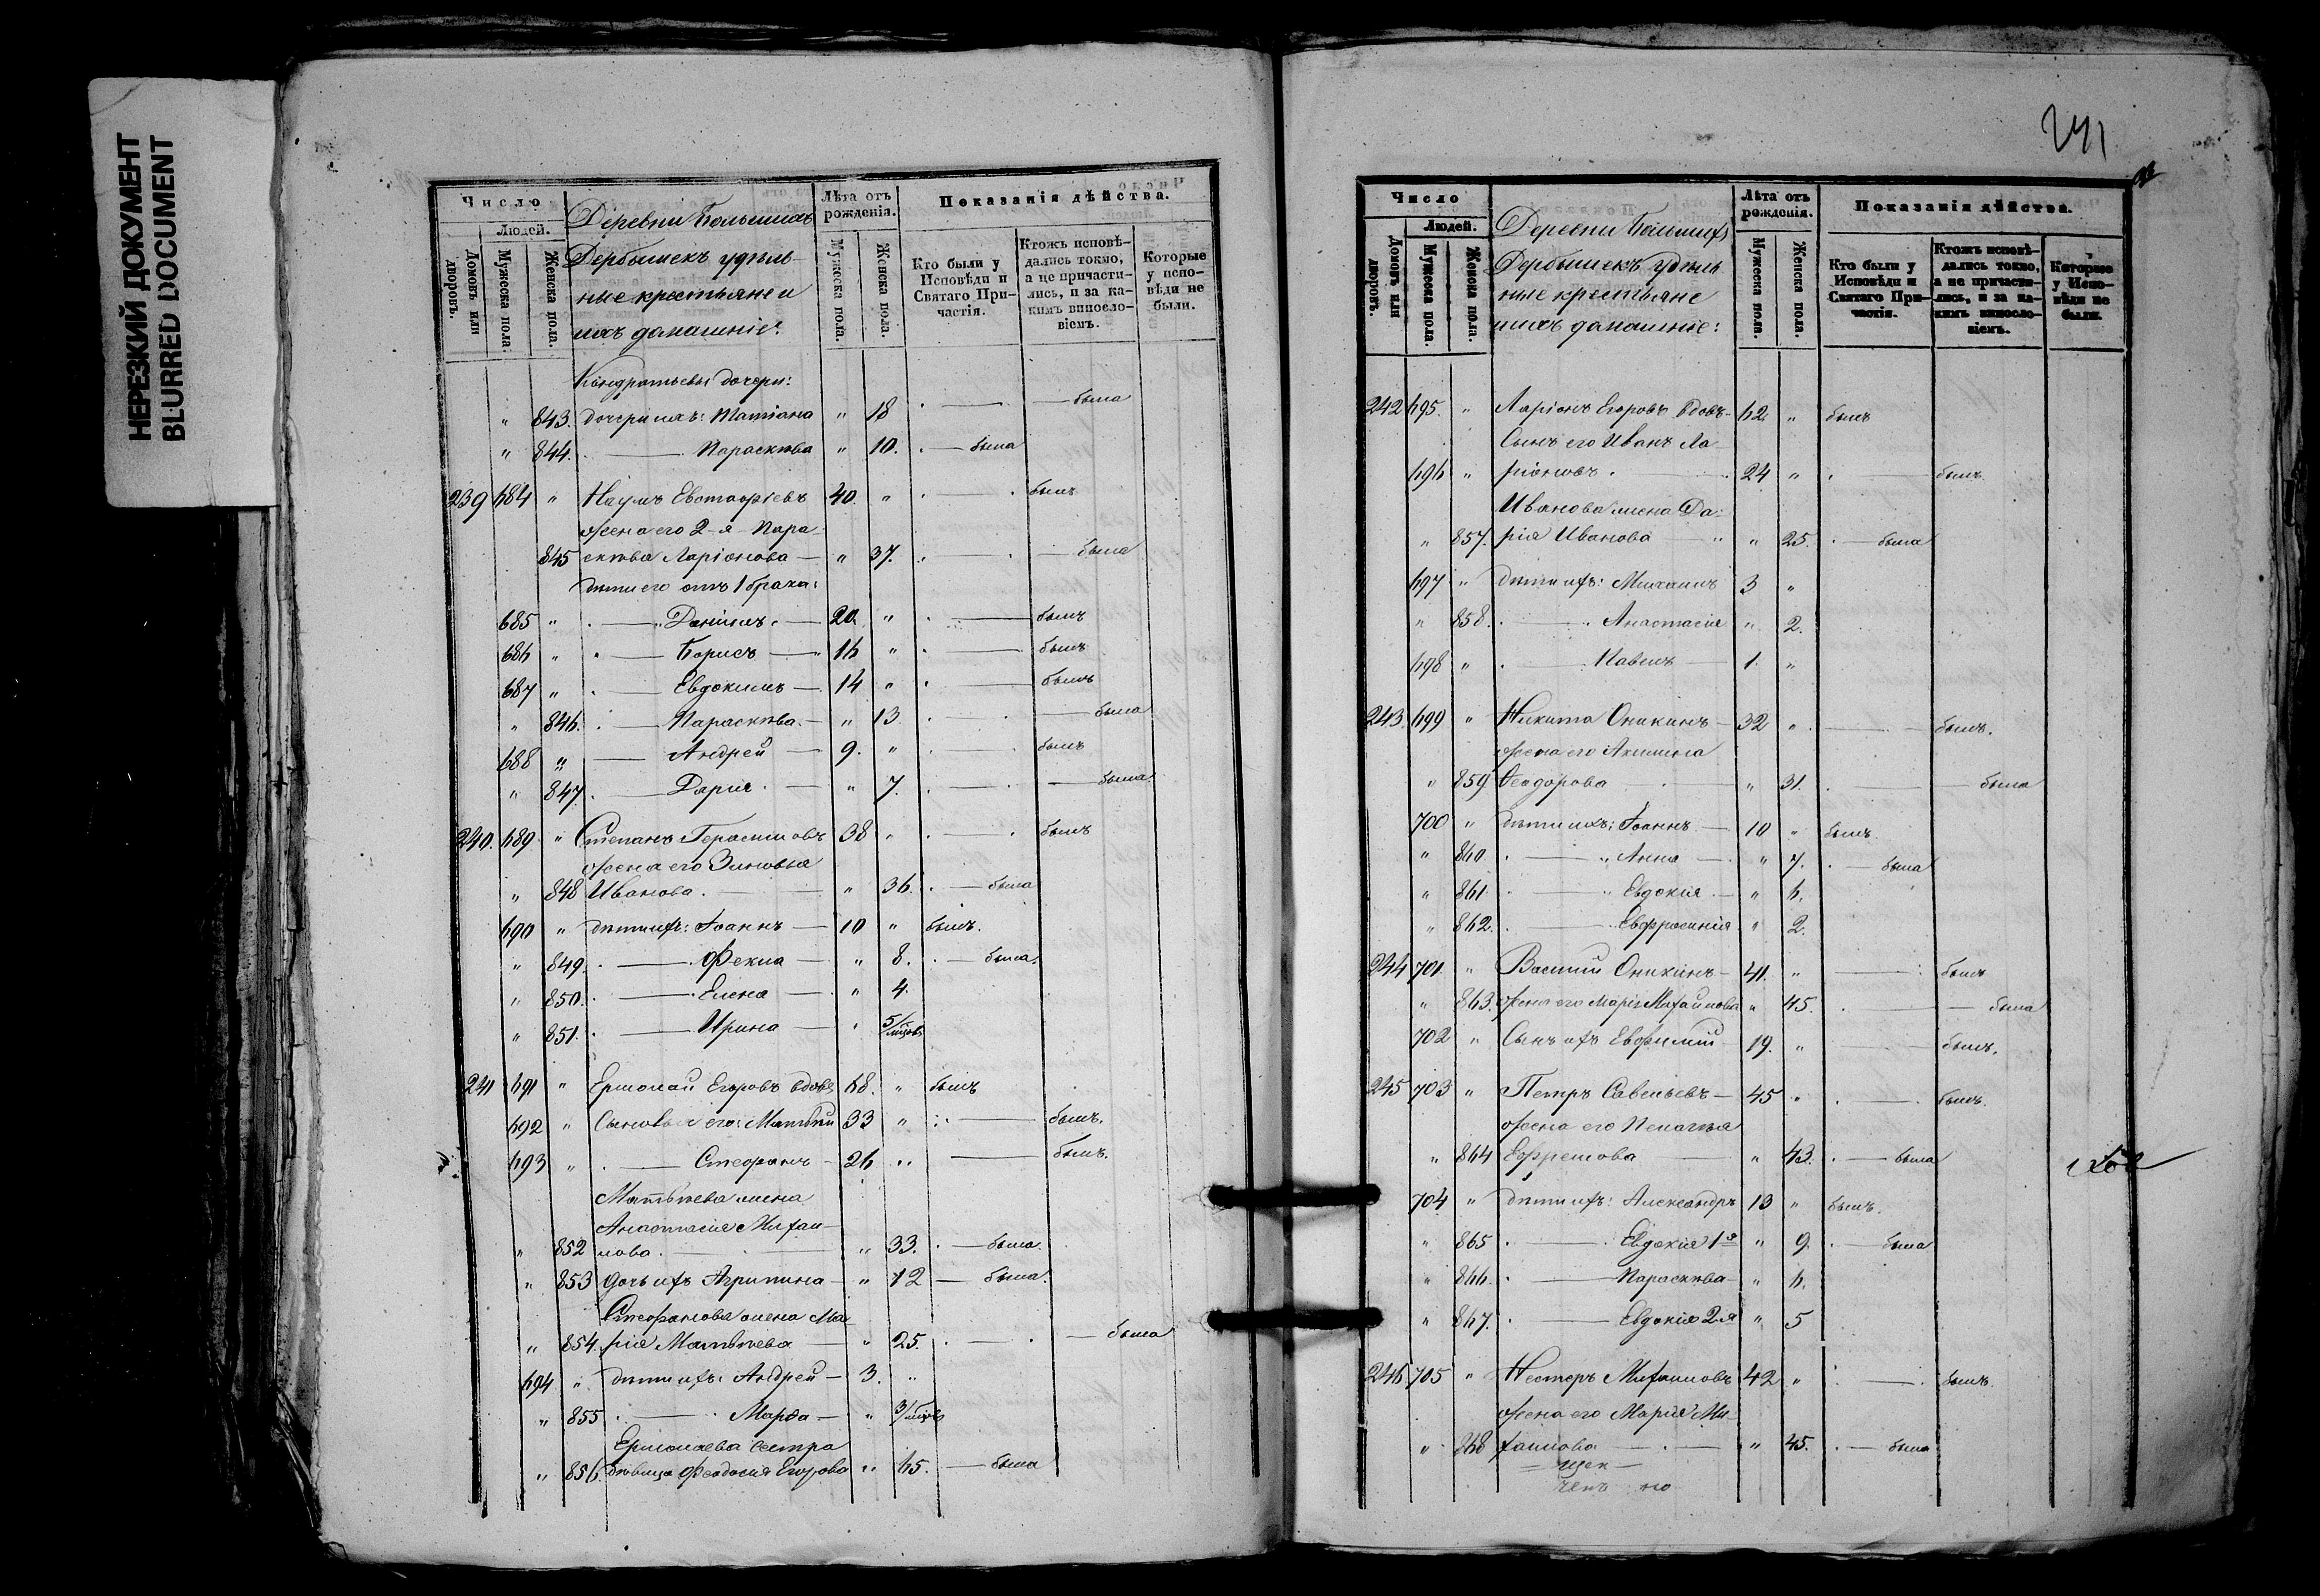 НЕРЕЗКИЙ ДОКУМЕНТ
BLURRED DOCUMENT
Число
Людей.
Домовъ или дворовъ.
Мужеска пола.
Женска пола.
Деревни Большихъ
Дербышекъ удѣль-
ные крестьяне и
ихъ домашніе:
Лѣта отъ рожденія.
Мужеска пола.
Женска пола.
Показанія дѣйства.
Кто были у Исповѣди и Святаго Причастія.
Ктожъ исповѣдались токмо, а не причастились, и за какимъ винословіемъ.
Которые у исповѣди не были.
Кондратьевы дочери:
" 843. дочери ихъ: Татіана " 18 была
" 844. Параскѣва " 10. была
239 684 " Наумъ Евстафіевъ 40. " былъ
жена его 2-я Пара-
845 скѣва Ларіонова " 37. была
дѣти его отъ 1 брака:
685 " Даніилъ 20 " былъ
686 " Борисъ 16 " былъ
687 " Евдокимъ 14 " былъ
" 846. Параскѣва " 13. была
688 " Андрей 9. " былъ
" 847. Дарія " 7. была
240. 689 " Степанъ Герасимовъ 38 " былъ
жена его Зиновья
" 848 Иванова " 36. была
690 " дѣти ихъ: Іоаннъ 10 " былъ.
" 849. Фекла " 8. была.
" 850. Елена " 4.
" 851. Ирина " 5/мцовъ
241 691 " Ермолай Егоровъ вдовъ 68. " былъ
692 " Сыновья его: Матвѣй 33 " былъ.
693 " Стефанъ 26 " былъ.
Матвѣева жена
Анастасія Михаи-
" 852 лова " 33. была
" 853 дочь ихъ Агрипина " 12 была.
Стефанова жена Ма-
" 854. рія Матвѣева " 25. была
694 " дѣти ихъ: Андрей 3. "
" 855 Марѳа " 3/мцовъ
Ермолаева сестра
" 856. дѣвица Феодосія Егорова " 65. была
241
Число
Людей.
Домовъ или дворовъ.
Мужеска пола.
Женска пола.
Деревни Большихъ
Дербышекъ удѣль
ные крестьяне
и ихъ домашніе:
Лѣта отъ рожденія.
Мужеска пола.
Женска пола.
Показанія дѣйства.
Кто были у Исповѣди и Святаго Причастія.
Ктожъ исповѣдались токмо, а не причастились, и за какимъ винословіемъ.
Которые у Исповѣди не были.
242 695. " Ларіонъ Егоровъ вдовъ 62 " былъ
Сынъ его Иванъ Ла-
696 " ріоновъ 24 " былъ
Иванова жена Да-
" 857. рія Иванова " 25. была
697 " дѣти ихъ: Михаилъ 3 "
" 858. Анастасія " 2.
698 " Павелъ 1. "
243. 699 " Никита Оникинъ 32 " былъ.
жена его Акилина
" 859 Ѳеодорова " 31. была
700 " дѣти ихъ: Іоаннъ 10 " былъ
" 860. Анна " 7. была
" 861. Евдокія " 6.
" 862. Евфросинія " 2.
244 701. " Василій Оникинъ 41. " былъ
" 863. жена его Марія Михайлова " 45. была
702 " Сынъ ихъ Евфимій 19. " былъ.
245 703 " Петръ Савельевъ 45 " былъ.
жена его Пелагія
" 864 Ефремова " 43. была
704 " дѣти ихъ: Александръ 13 " былъ.
" 865 Евдокія 1я " 9. была
" 866. Параскѣва " 6.
" 867. Евдокія 2-я " 5
246 705 " Несторъ Михаиловъ 42 " былъ
жена его Марія Ми-
" 868 хаилова " 45. была